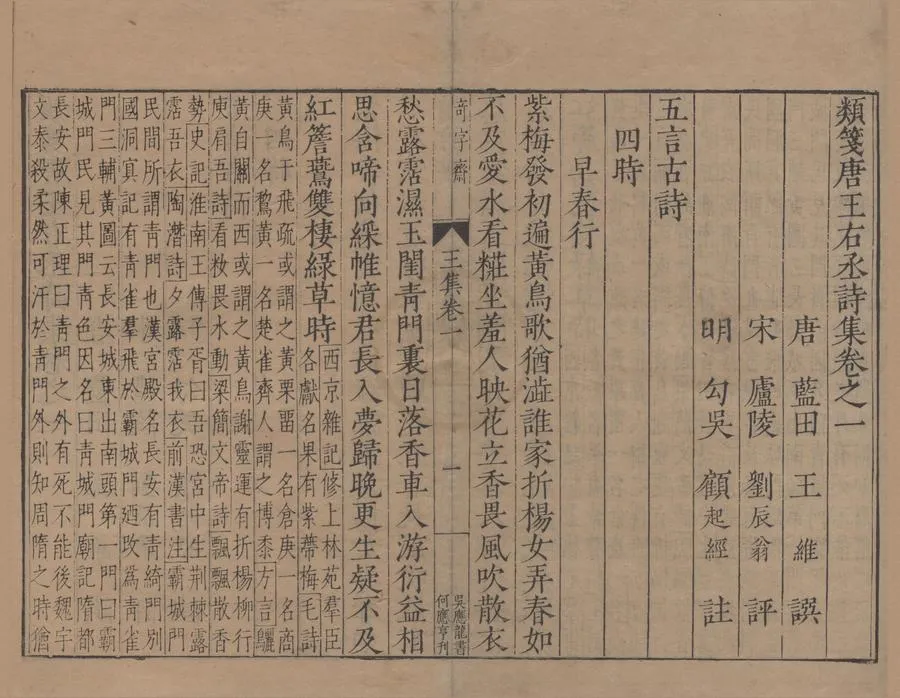 類箋唐王右丞詩集卷之一
唐藍田王維譔
宋廬陵劉辰翁評
明勾吳顧起經註
五言古詩
四時
早春行
紫梅發初遍黃鳥歌猶澁誰家折楊女弄春如
不及愛水看糚坐羞人映花立香畏風吹散衣
奇字齋
王集卷一
一
吳應龍書
何應亨刊
愁露霑濕玉閨青門裏日落香車入游衍益相
思含啼向綵帷憶君長入夢歸晚更生疑不及
紅簷鷰雙棲綠草時
西京雜記修上林苑羣臣
各獻名果有紫蔕梅毛詩
黃鳥于飛疏或謂之黃栗畱一名倉庚一名商
庚一名鵹黃一名楚雀齊人謂之博黍方言鸝
黃自關而西或謂之黃鳥謝靈運有折楊柳行
庾肩吾詩看妝畏水動梁簡文帝詩飄飄散香
勢史記淮南王傳子胥曰吾恐宮中生荆棘露
霑吾衣陶潛詩夕露霑我衣前漢書注霸城門
民間所謂青門也漢宮殿名長安有青綺門別
國洞寘記有青雀羣飛於霸城門廼攺爲青雀
門三輔黃圖云長安城東出南頭第一門曰霸
城門民見其門青色因名曰青城門廟記隋都
長安故陳正理曰青門之外有死不能後魏宇
文泰殺柔然可汗於青門外則知周隋之時猶